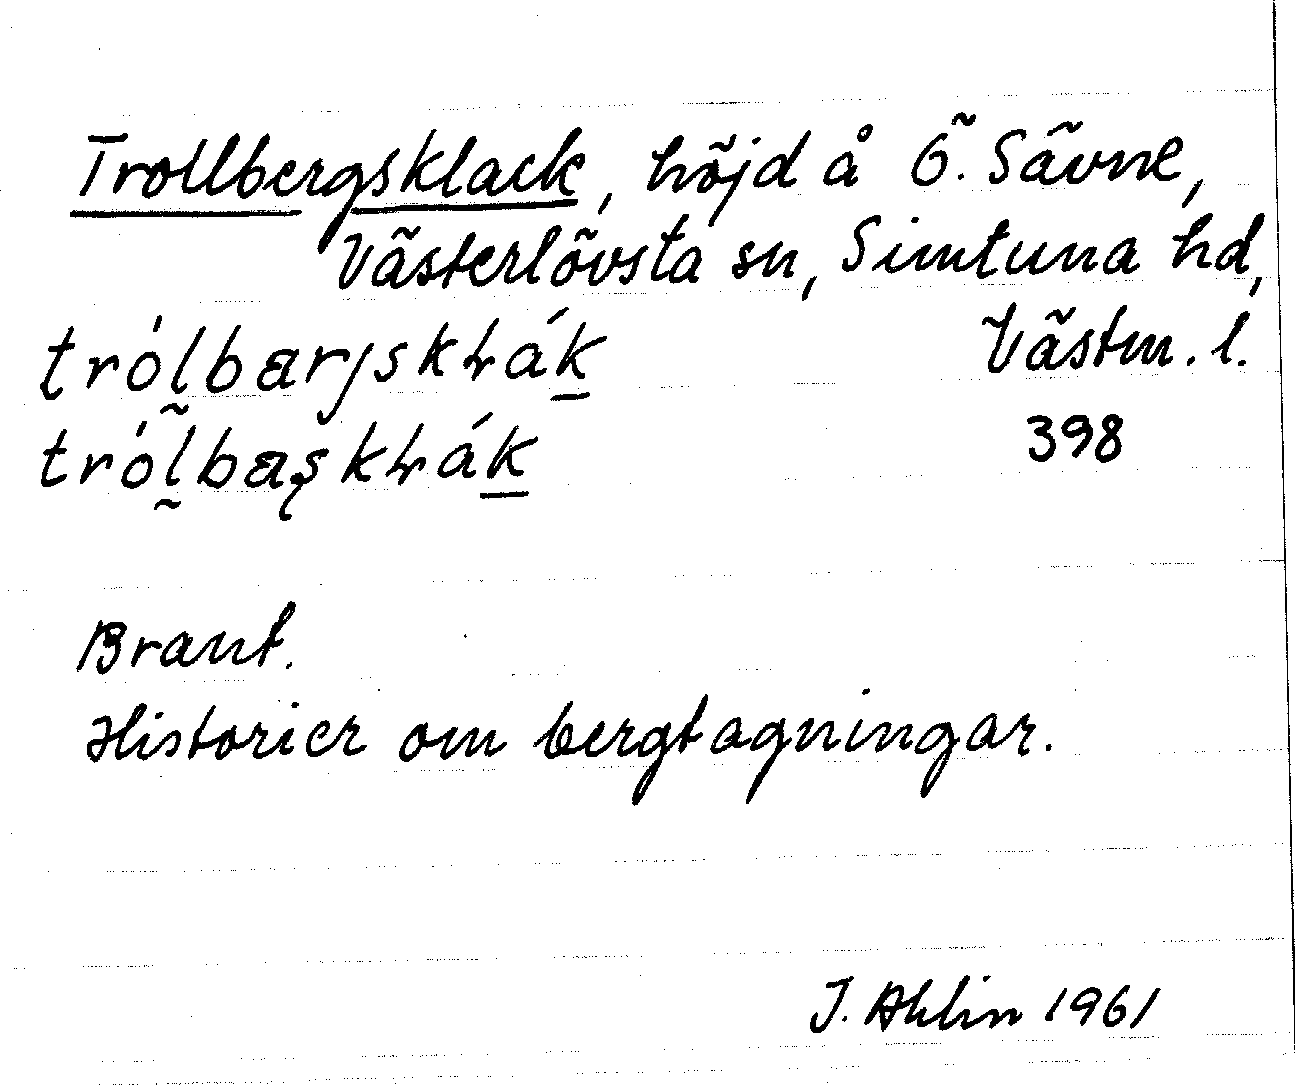 Trollbergsklack, höjd å Ö. Sävne,
Västerlövsta sn, Simtuna hd,
Västm. l.
398
Brant.
Historier om bergtagningar.
J. Ahlin 1961